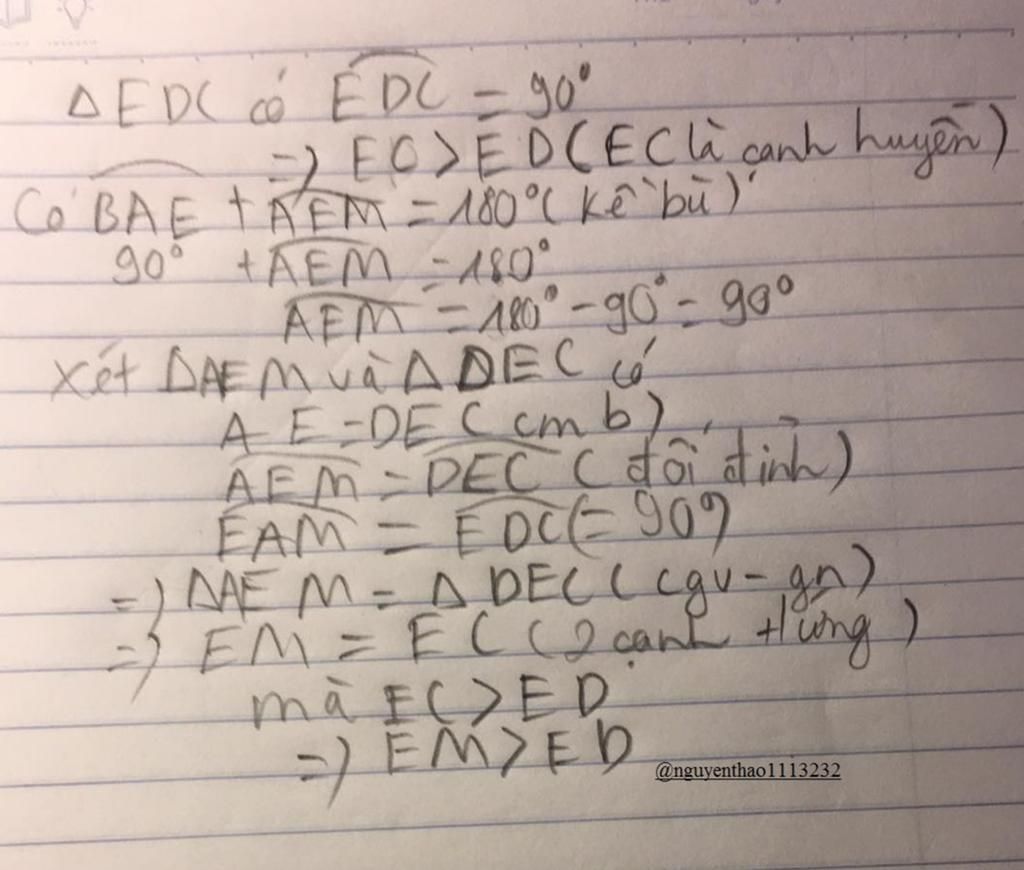 Δ EDC có EDC = 90°
=) EC > ED (EC là cạnh huyền)
Có BAE + AEM = 180° (kề bù)
90° + AEM = 180°
AEM = 180° - 90° = 90°
Xét ΔAEM và Δ DEC có
AE = DE (cm b)
AEM = DEC (đối đỉnh)
EAM = EDC (= 90°)
=) ΔAEM = Δ DEC (cgv - gn)
=) EM = EC (2 cạnh tứng)
mà EC > ED
=) EM > ED
@nguyenthao1113232